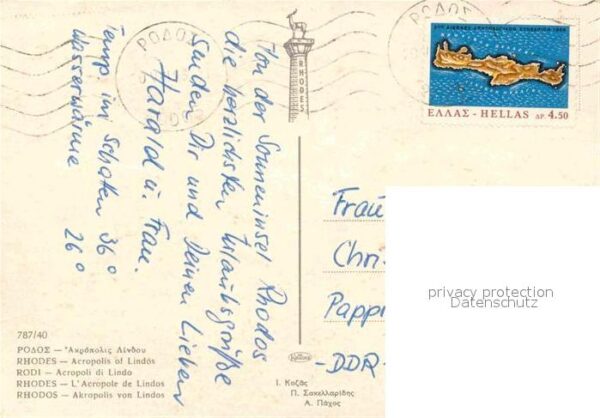 Von der Sonneninsel Rhodos
die herzlichsten Urlaubsgrüße
senden Dir und Deinen Lieben
Harald u. Frau.
Temp. im Schatten 36°
Wasserwärme 26°
ΡΟΔΟΣ
RHODES
ΕΛΛΑΣ - HELLAS ΔΡ. 4.50
Frau
Chri
Pappi
-DDR-
privacy protection
Datenschutz
787/40
ΡΟΔΟΣ — Ἀκρόπολις Λίνδου
RHODES — Acropolis of Lindos
RODI — Acropoli di Lindo
RHODES — L'Acropole de Lindos
RHODOS — Akropolis von Lindos
Ι. Κοζᾶς
Π. Σακελλαρίδης
Α. Πάχος